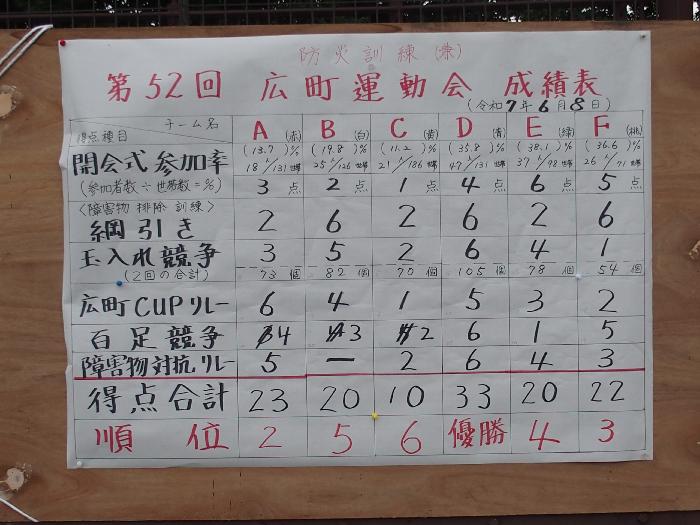 防災訓練(兼)
第52回 広町運動会 成績表
(令和7年6月8日)
チーム名 A(赤) B(白) C(黄) D(青) E(緑) F(桃)
得点種目
開会式参加率 (13.7)% (19.8)% (11.2)% (35.8)% (38.1)% (36.6)%
18人/131世帯 25人/126世帯 21人/186世帯 47人/131世帯 37人/98世帯 26人/71世帯
(参加者数÷世帯数=%) 3点 2点 1点 4点 6点 5点
〈障害物排除訓練〉
綱引き 2 6 2 6 2 6
玉入れ競争 3 5 2 6 4 1
(2回の合計) 73個 82個 70個 105個 78個 54個
広町CUPリレー 6 4 1 5 3 2
百足競争 4 3 2 6 1 5
障害物対抗リレー 5 ー 2 6 4 3
得点合計 23 20 10 33 20 22
順位 2 5 6 優勝 4 3